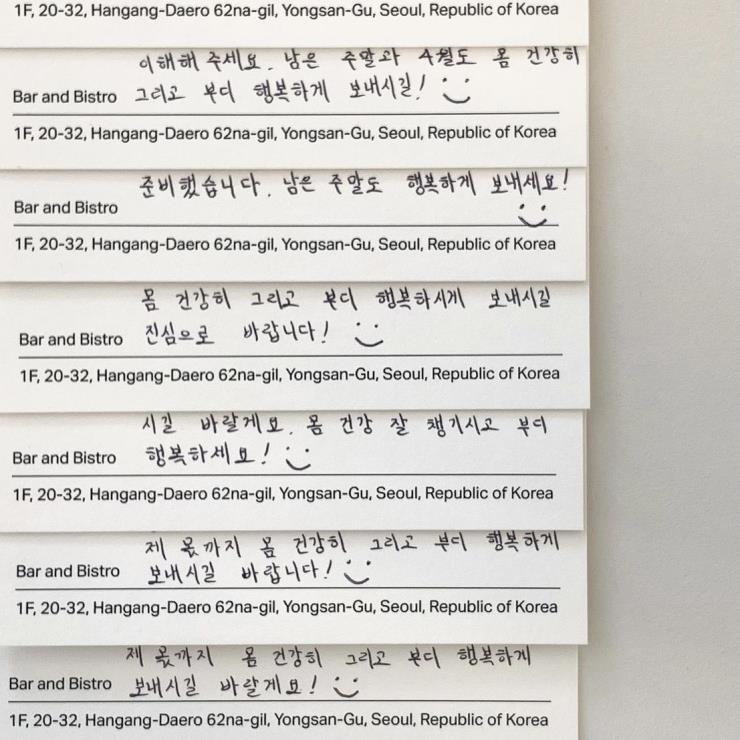 1F, 20-32, Hangang-Daero 62na-gil, Yongsan-Gu, Seoul, Republic of Korea
이해해 주세요. 남은 주말과 4월도 몸 건강히
Bar and Bistro 그리고 부디 행복하게 보내시길!
1F, 20-32, Hangang-Daero 62na-gil, Yongsan-Gu, Seoul, Republic of Korea
준비했습니다. 남은 주말도 행복하게 보내세요!
Bar and Bistro
1F, 20-32, Hangang-Daero 62na-gil, Yongsan-Gu, Seoul, Republic of Korea
몸 건강히 그리고 부디 행복하시게 보내시길
Bar and Bistro 진심으로 바랍니다!
1F, 20-32, Hangang-Daero 62na-gil, Yongsan-Gu, Seoul, Republic of Korea
시길 바랄게요. 몸 건강 잘 챙기시고 부디
Bar and Bistro 행복하세요!
1F, 20-32, Hangang-Daero 62na-gil, Yongsan-Gu, Seoul, Republic of Korea
제 몫까지 몸 건강히 그리고 부디 행복하게
Bar and Bistro 보내시길 바랍니다!
1F, 20-32, Hangang-Daero 62na-gil, Yongsan-Gu, Seoul, Republic of Korea
제 몫까지 몸 건강히 그리고 부디 행복하게
Bar and Bistro 보내시길 바랄게요!
1F, 20-32, Hangang-Daero 62na-gil, Yongsan-Gu, Seoul, Republic of Korea